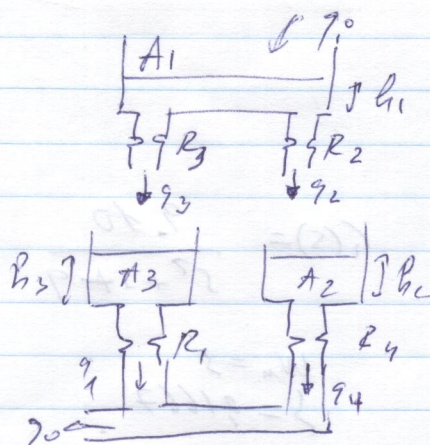 A1 qi
h1
R3 R2
q3 q2
h3 A3 A2 h2
R1 R4
q1 q4
q0